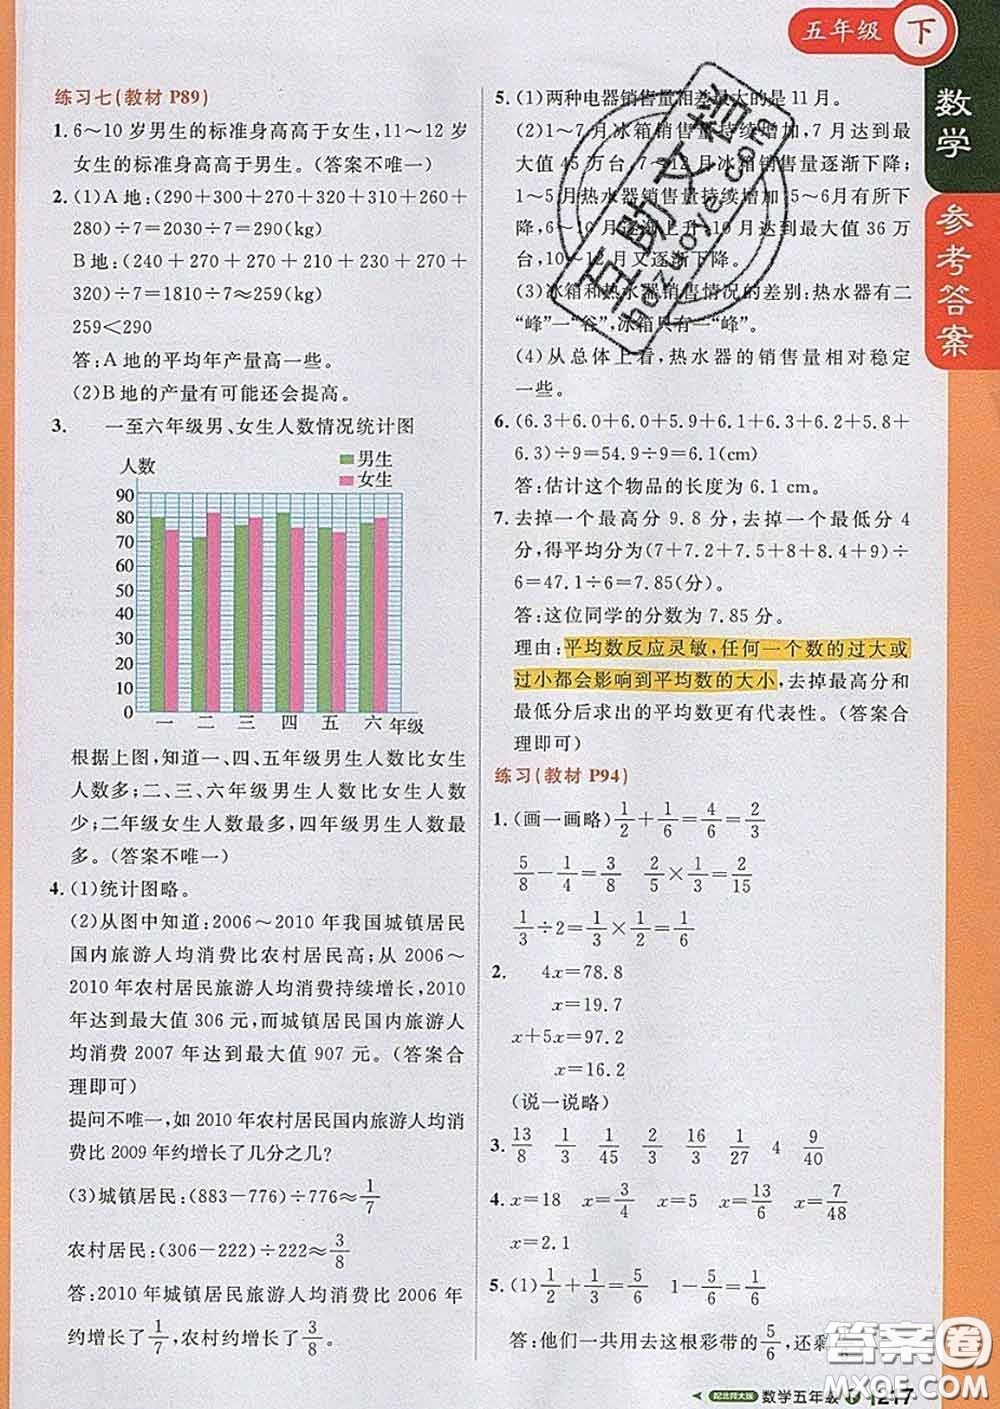 五年级 下
数学
参考答案
练习七(教材 P89)
1. 6～10 岁男生的标准身高高于女生,11～12 岁
女生的标准身高高于男生。(答案不唯一)
2. (1)A 地:(290+300+270+320+310+260+
280)÷7=2030÷7=290(kg)
B 地:(240+210+270+210+280+280+
320)÷7=1810÷7≈259(kg)
259<290
答:A 地的平均年产量高一些。
(2)B 地的产量有可能还会提高。
3. 一至六年级男、女生人数情况统计图
人数
男生
女生
90
80
70
60
50
40
30
20
10
0
一 二 三 四 五 六 年级
根据上图,知道一、四、五年级男生人数比女生
人数多;二、三、六年级男生人数比女生人数
少;二年级女生人数最多,四年级男生人数最
多。(答案不唯一)
4. (1)统计图略。
(2)从图中知道:2006～2010 年我国城镇居民
国内旅游人均消费比农村居民高;从 2006～
2010 年农村居民旅游人均消费持续增长,2010
年达到最大值 306 元,而城镇居民国内旅游人
均消费 2007 年达到最大值 907 元。(答案合
理即可)
提问不唯一,如 2010 年农村居民国内旅游人均消
费比 2009 年约增长了几分之几?
(3)城镇居民:(883-776)÷776≈1/7
农村居民:(306-222)÷222≈3/8
答:2010 年城镇居民国内旅游人均消费比 2006 年
约增长了1/7,农村约增长了3/8。
5. (1)两种电器销售量相差最大的是 11 月。
(2)1～7 月冰箱销售量持续增加,7 月达到最
大值 45 万台,7～12 月冰箱销售量逐渐下降;
1～5月热水器销售量持续增加,5～6月有所下
降,6～10月逐渐上升,10月达到最大值 36 万
台,10～12月又逐渐下降。
(3)冰箱和热水器销售情况的差别:热水器有二
“峰”一“谷”,冰箱只有一“峰”。
(4)从总体上看,热水器的销售量相对稳定
一些。
6. (6.3+6.0+6.0+5.9+6.1+6.3+6.2+5.8+
6.3)÷9=54.9÷9=6.1(cm)
答:估计这个物品的长度为 6.1 cm。
7. 去掉一个最高分 9.8 分,去掉一个最低分 4
分,得平均分为(7+7.2+7.5+8+8.4+9)÷
6=47.1÷6=7.85(分)。
答:这位同学的分数为 7.85 分。
理由:平均数反应灵敏,任何一个数的过大或
过小都会影响到平均数的大小,去掉最高分和
最低分后求出的平均数更有代表性。(答案合
理即可)
练习(教材 P94)
1. (画一画略) 1/2+1/6=4/6=2/3
5/8-1/4=3/8 2/5×1/3=2/15
1/3÷2=1/3×1/2=1/6
2. 4x=78.8
x=19.7
x+5x=97.2
x=16.2
(说一说略)
3. 13/8 1/3 1/45 2/3 16/3 1/27 4 9/40
4. x=18 x=3/4 x=5 x=13/6 x=7/6
x=2.1
5. (1)1/2+1/3=5/6 1-5/6=1/6
答:他们一共用去这根彩带的5/6,还剩
互助文档
bazgoye.com
答案圈
配北师大版 数学五年级 下 217